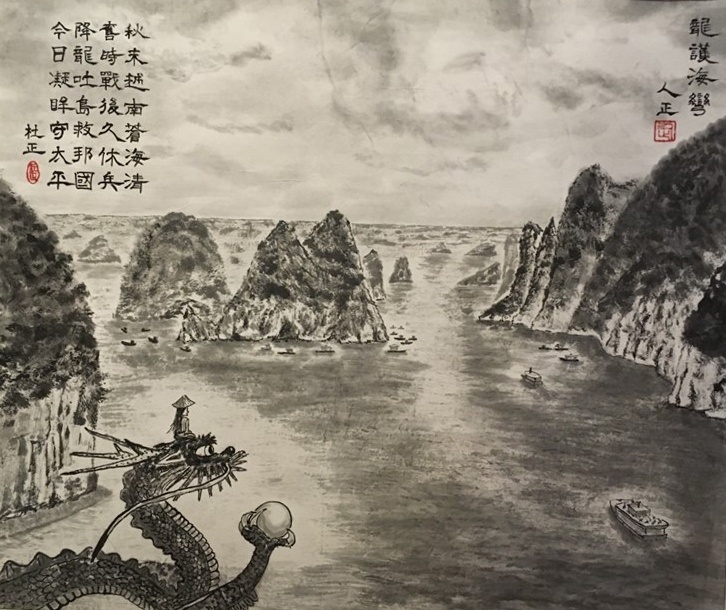 龍護海彎
人正
秋越南蒼海清
時戰後久休兵
降龍吐島救邦國
今日凝眸守太平
杜正